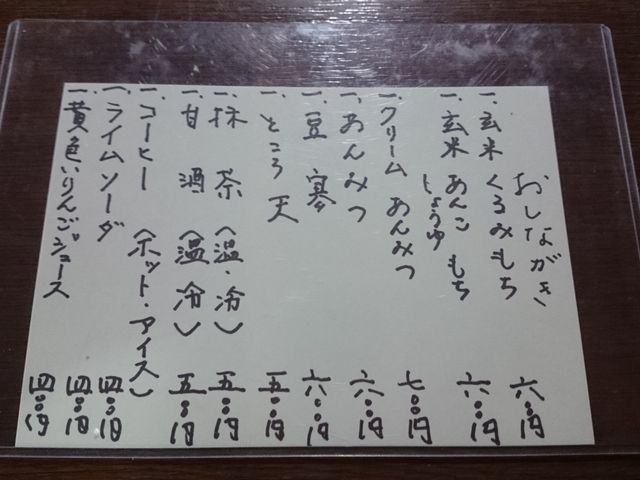 おしながき
一、玄米くるみもち 六〇〇円
一、玄米あんこもち 六〇〇円
しょうゆ
一、クリームあんみつ 七〇〇円
一、あんみつ 六〇〇円
一、豆寒 六〇〇円
一、ところ天 五〇〇円
一、抹茶(温・冷) 五〇〇円
一、甘酒(温・冷) 五〇〇円
一、コーヒー(ホット・アイス) 四〇〇円
一、ライムソーダ 四〇〇円
一、黄色いりんごジュース 四〇〇円